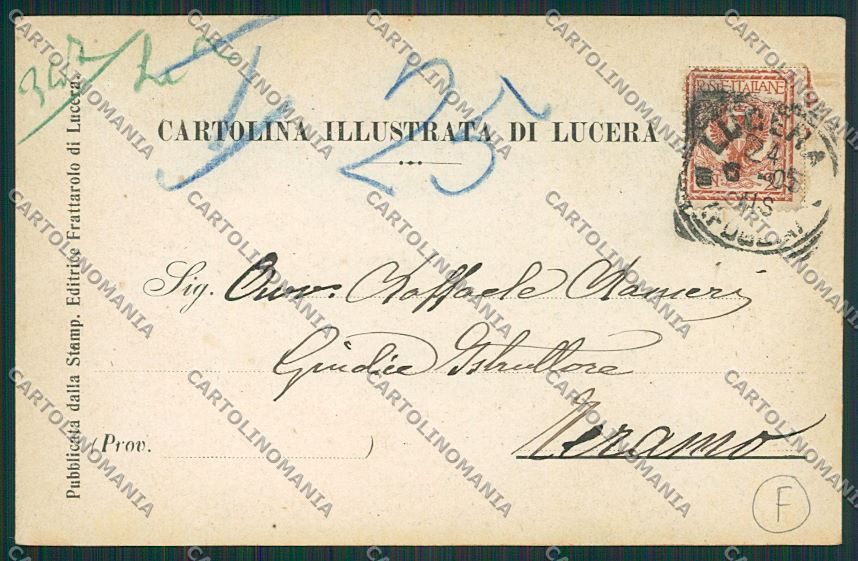 25
CARTOLINA ILLUSTRATA DI LUCERA
POSTE ITALIANE
LUCERA
24
05
(FOGGIA)
Sig. Avv. Raffaele Ranieri
Giudice Istruttore
Teramo
(Prov. )
Pubblicata dalla Stamp. Editrice Frattarolo di Lucera.
F
CARTOLINOMANIA